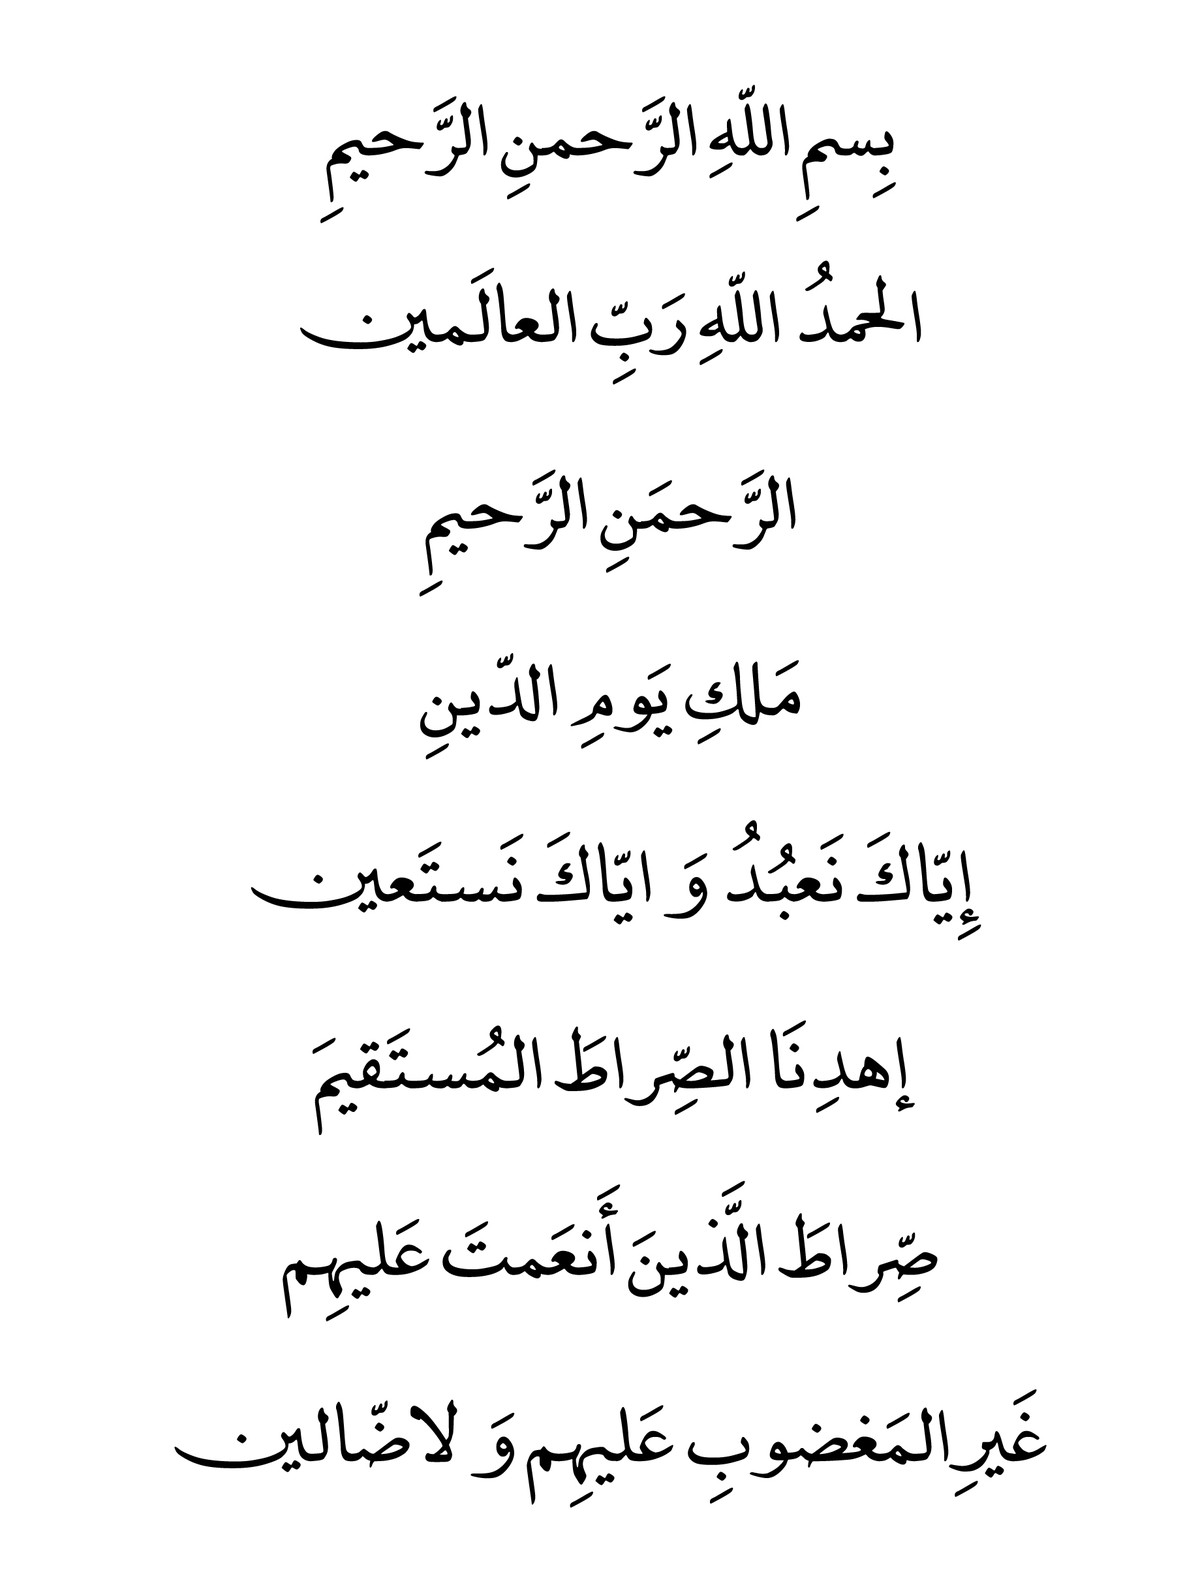 بِسمِ اللّهِ الرَّحمنِ الرَّحيمِ
الحمدُ اللّهِ رَبِّ العالَمين
الرَّحمَنِ الرَّحيمِ
مَللكِ يَومِ الدّينِ
إِيّاكَ نَعبُدُ وَ ايّاكَ نَستَعين
إهدِنَا الصِّراطَ المُستَقيمَ
صِّراطَ الَّذينَ أَنعَمتَ عَليهِم
غَيرِالمَغضوبِ عَليهِم وَ لاضّالين